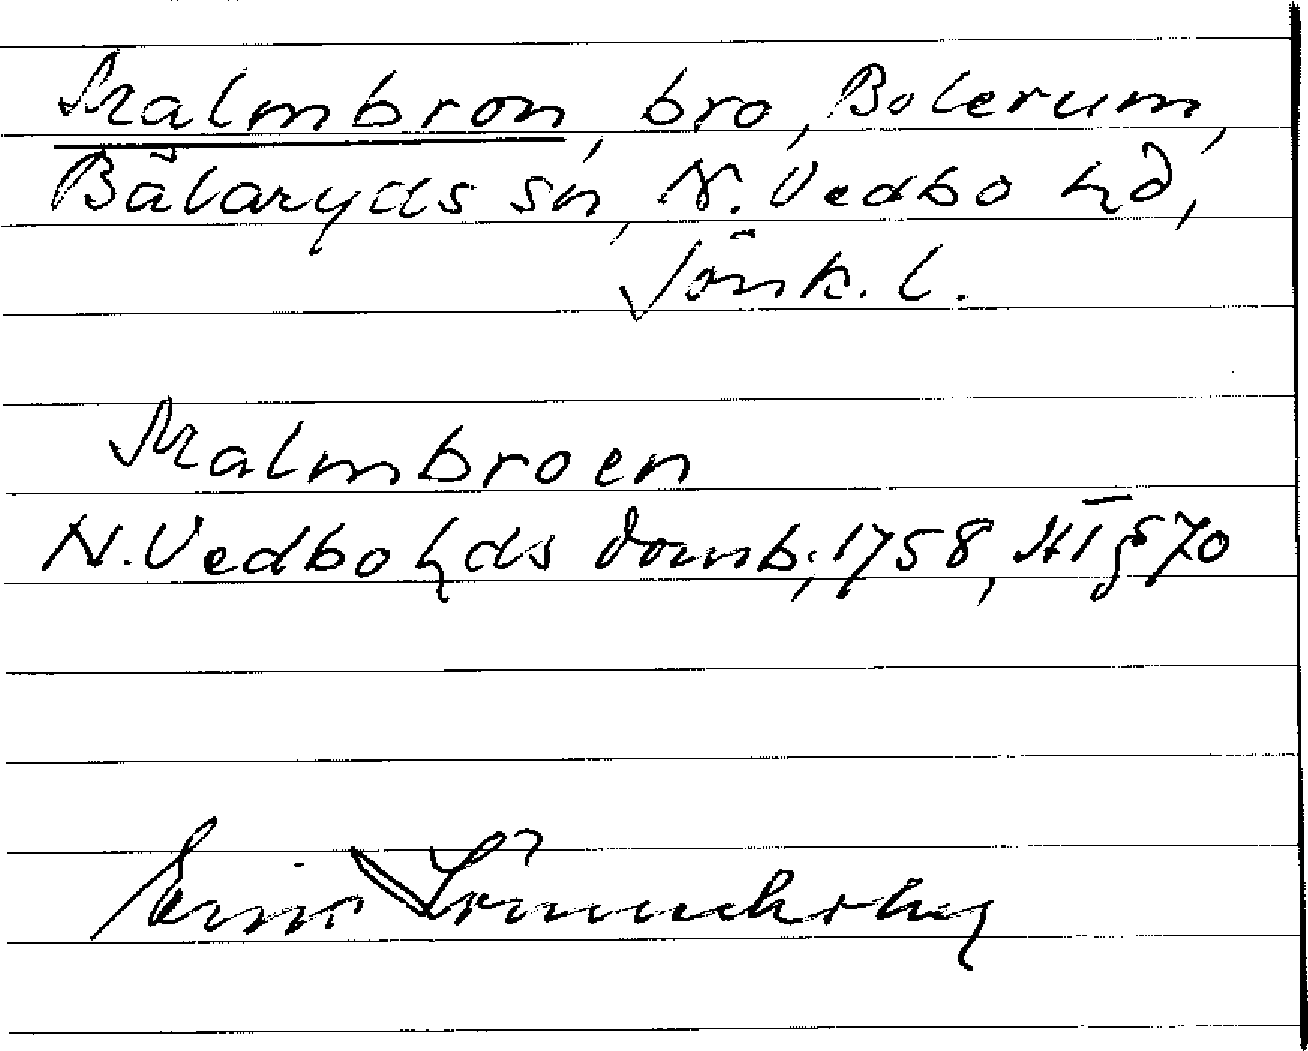 Malmbron, bro, Bolerum,
Bälaryds sn, N. Vedbo hd,
Jönk. l.
Malmbroen
N. Vedbo hds domb; 1758, HT § 70